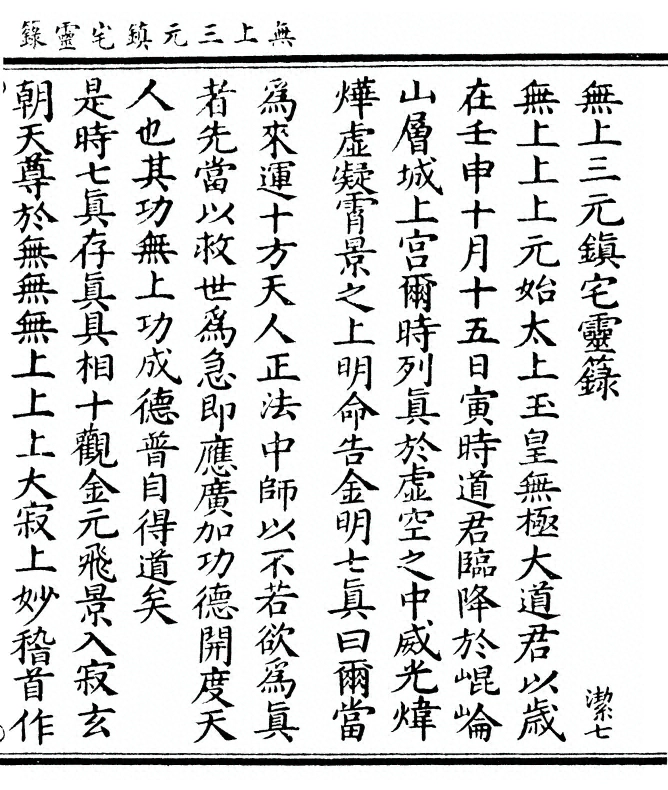 無上三元鎮宅靈籙
無上三元鎮宅靈籙
潔七
無上上上元始太上玉皇無極大道君以歲
在壬申十月十五日寅時道君臨降於崐崘
山層城上宮爾時列眞於虛空之中威光煒
燁虛凝霄景之上明命告金明七眞曰爾當
爲來運十方天人正法中師以不若欲爲眞
者先當以救世爲急即應廣加功德開度天
人也其功無上功成德普自得道矣
是時七眞存眞具相十觀金元飛景入寂玄
朝天尊於無無無上上上大寂上妙稽首作